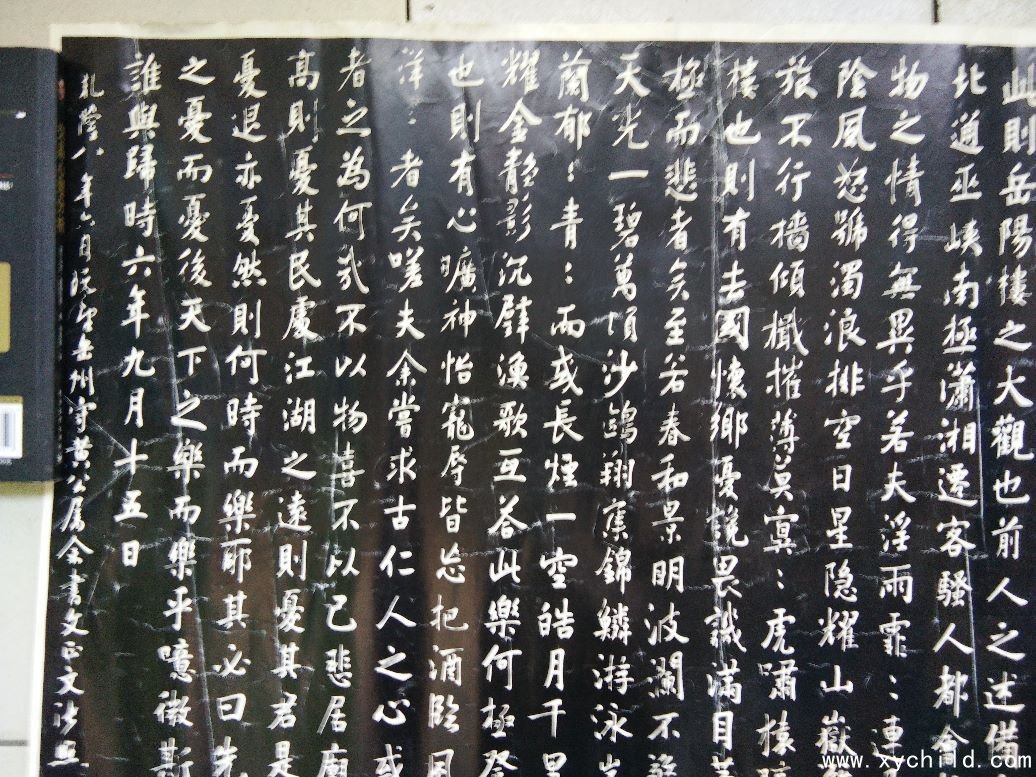 此則岳陽樓之大觀也前人之述備
北通巫峽南極瀟湘遷客騷人都會
物之情得無異乎若夫淫雨霏〻連
陰風怒號濁浪排空日星隱耀山嶽
旅不行檣傾檝摧薄莫冥〻虎嘯猿
樓也則有去國懷鄉憂讒畏譏滿目
極而悲者矣至若春和景明波瀾不
天光一碧萬頃沙鷗翔集錦鱗游泳
蘭郁〻青〻而或長煙一空皓月千里
耀金靜影沉璧漁歌互荅此樂何極登
也則有心曠神怡寵辱皆忘把酒臨風
洋〻者矣嗟夫余嘗求古仁人之心或
者之為何哉不以物喜不以己悲居廟
高則憂其民處江湖之遠則憂其君是
憂退亦憂然則何時而樂耶其必曰先
之憂而憂後天下之樂而樂乎噫微斯
誰與歸時六年九月十五日
乾隆八年六月 岳州守黃公屬余書文正文
www.xychild.com